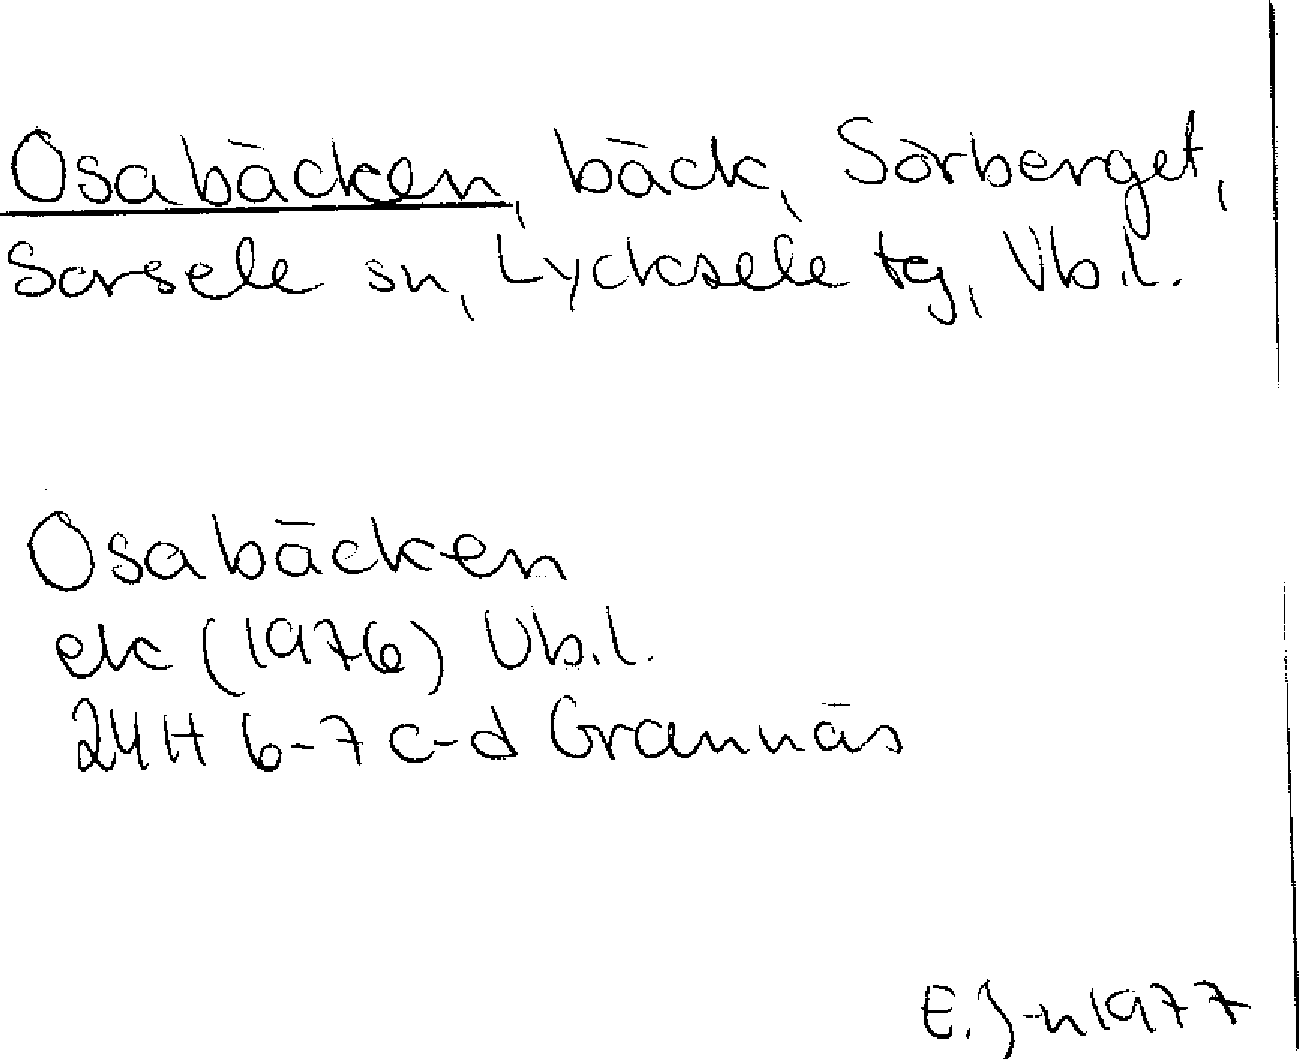 Osabäcken, bäck, Sörberget,
Sorsele sn, Lycksele tg, Vb.l.
Osabäcken
ek (1976) Vb.l.
24H 6-7 c-d Grannäs
E. J-n 1977